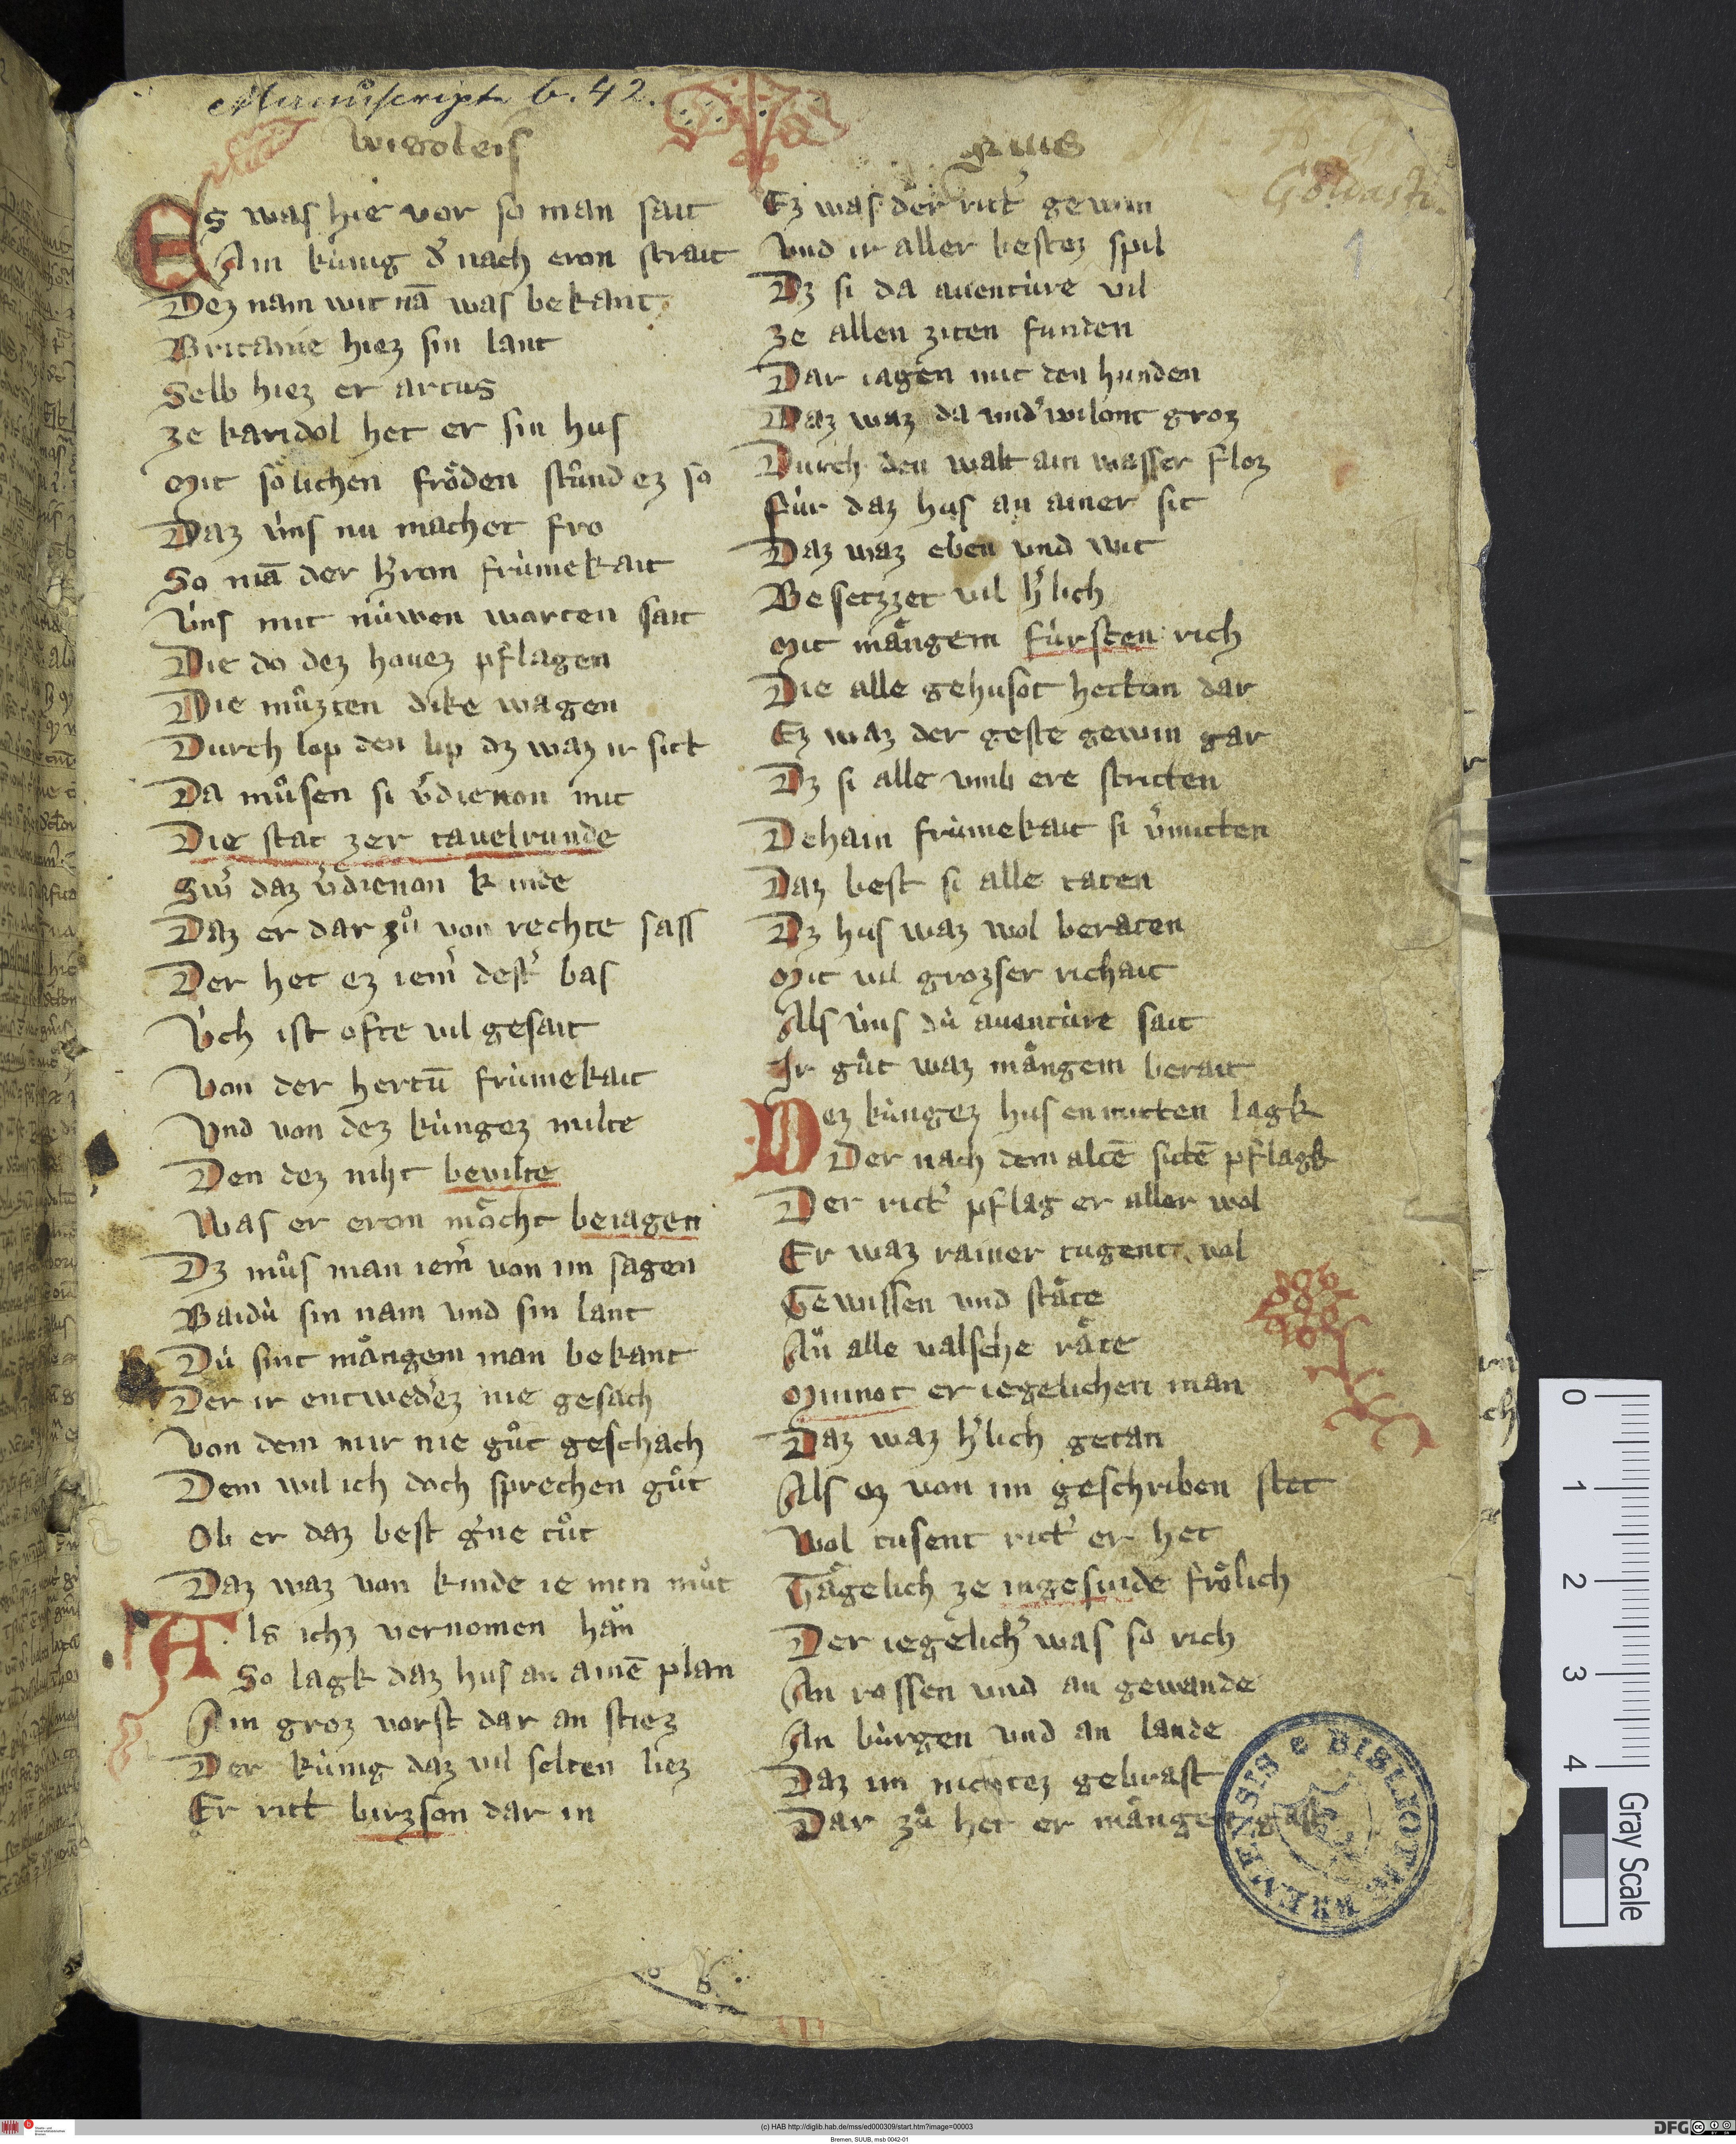 Manuscript. b. 42.
wigoleis
Es was hie vor so man sait
Ain kùnig d͛ nach eron strait
Dez nam wit nā was bekant
Britanie hiez sin lant
Selb hiez er artus
ze karidol het er sin hus
Mit soͤlichen froͤden stuͦnd ez so
Daz ùns nu machet fro
So mā der h͛ron frùmekait
Ùns mit nùwen worten sait
Die do dez houez pflagen
Die muͦzten dike wagen
Durch lop den lip dz waz ir sitt
Da muͦsen si v͛dienon mit
Die stat zer tauelrunde
Sw͛ daz v͛dienon kunde
Daz er dar zuͦ von rechte sass
Der het ez iem͛ dest͛ bas
Ùch ist ofte vil gesait
Von der hertū frùmekait
Vnd von dez kùngez milte
Den dez niht beuilte
Was er eron moͤcht beiagen
Dz muͦs man iem͛ von im sagen
Baidù sin nam vnd sin lant
Dù sint maͤngem man bekant
Der ir entwed͛ez nie gesach
Von dem mir nie guͦt geschach
Dem wil ich doch sprechen guͦt
Ob er daz best g͛ne tuͦt
Daz waz von kinde ie min muͦt
Als ichz vernomen han
So lagk daz hus an ainē plan
Ain groz vorst dar an stiez
Der kùnig daz vil selten liez
Er ritt birzson dar in
Ez was der ritt͛ gewin
Vnd ir aller bestez spil
Dz si da auentùre vil
ze allen ziten funden
Dar iagen mit den hunden
Daz waz da vnd͛wilont groz
Durch den walt ain wasser floz
Fùr daz hus an ainer sit
Daz waz eben vnd wit
Besetzzet vil h͛lich
Mit maͤngem fùrsten rich
Die alle gehusot hetton dar
Ez waz der geste gewin gar
Dz si alle vmb ere stritten
Dehain frùmekait si v͛mitten
Daz best si alle taten
Dz hus waz wol beraten
Mit vil grozser richait
Als ùns dù auentùre sait
Ir guͦt waz maͤngem berait
Dez kùngez hus enmitten lagk
Der nach dem altē sittē pflagk
Der ritt͛ pflag er aller wol
Er waz rainer tugent vol
Gewissen vnd staͤte
An alle valsche raͤte
Minnot er iegelichen man
Daz waz h͛lich getan
Als ez von im geschriben stet
Wol tusent ritt͛ er het
Taͤgelich ze ingesinde froͤlich
Der iegelich͛ was so rich
An rossen vnd an gewande
An bùrgen vnd an lande
Daz im nichtez gebrast
Dar zuͦ het er maͤngen gast
1
BIBLIOTH BREMENSIS
0 1 2 3 4
Gray Scale
(c) HAB http://diglib.hab.de/mss/ed000309/start.htm?image=00003
Bremen, SUUB, msb 0042-01
DFG